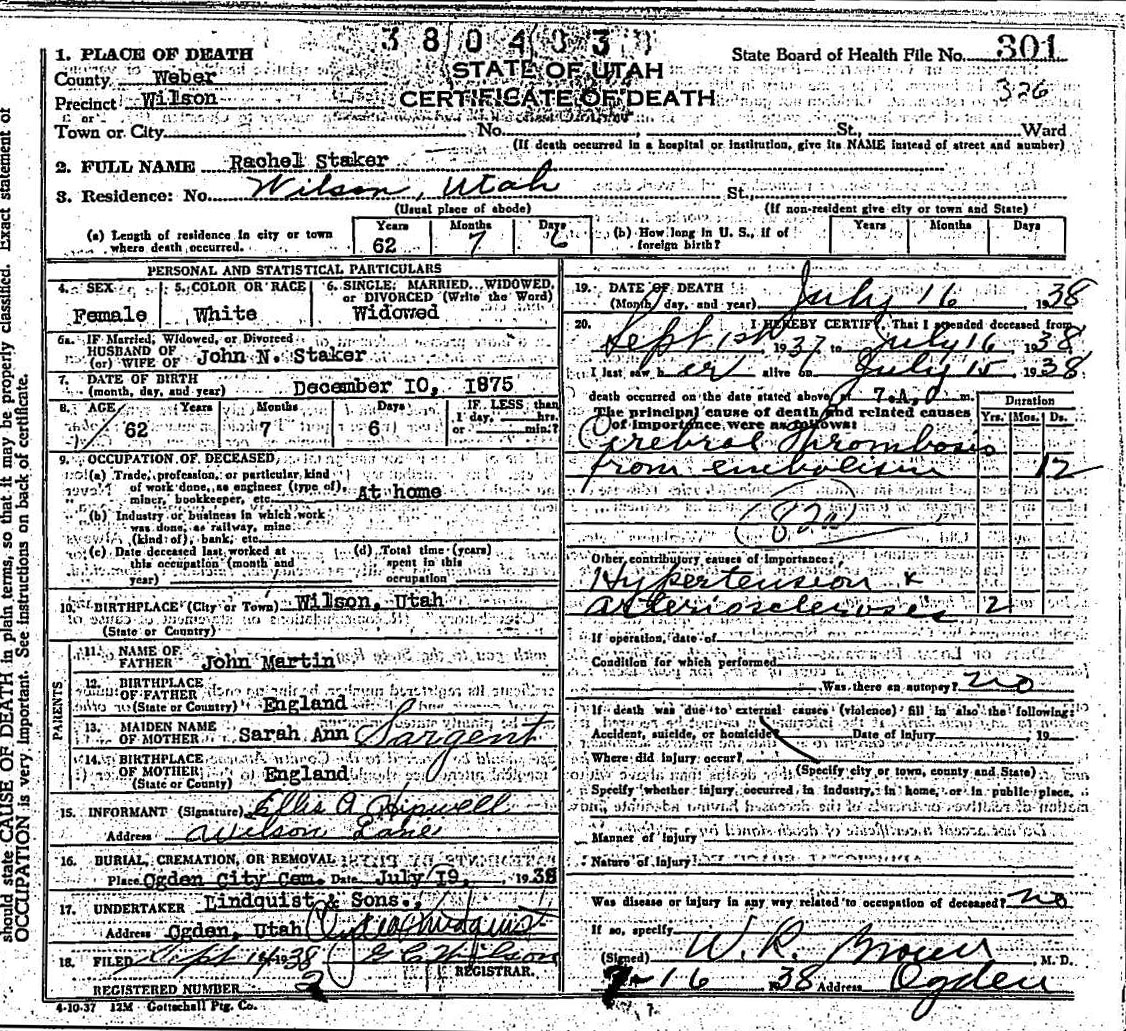 380403
1. PLACE OF DEATH
State Board of Health File No. 301
STATE OF UTAH
County Weber
326
CERTIFICATE OF DEATH
Precinct Wilson
or
Town or City No. St., Ward
(If death occurred in a hospital or institution, give its NAME instead of street and number)
2. FULL NAME Rachel Staker
3. Residence: No. Wilson, Utah St.,
(Usual place of abode) (If non-resident give city or town and State)
(a) Length of residence in city or town where death occurred. Years 62 Months 7 Days 6
(b) How long in U. S., if of foreign birth? Years Months Days
PERSONAL AND STATISTICAL PARTICULARS
4. SEX Female
5. COLOR OR RACE White
6. SINGLE, MARRIED, WIDOWED, or DIVORCED (Write the Word) Widowed
6a. If Married, Widowed, or Divorced
HUSBAND OF
(or) WIFE OF John N. Staker
7. DATE OF BIRTH
(month, day, and year) December 10, 1875
8. AGE Years 62 Months 7 Days 6
IF LESS than 1 day, hrs. or min.?
9. OCCUPATION OF DECEASED
(a) Trade, profession, or particular kind
of work done, as engineer (type of),
miner, bookkeeper, etc. At home
(b) Industry or business in which work
was done, as railway, mine
(kind of), bank, etc.
(c) Date deceased last worked at
this occupation (month and
year)
(d) Total time (years)
spent in this
occupation
10. BIRTHPLACE (City or Town) Wilson, Utah
(State or Country)
PARENTS
11. NAME OF
FATHER John Martin
12. BIRTHPLACE
OF FATHER
(State or Country) England
13. MAIDEN NAME
OF MOTHER Sarah Ann Sargent
14. BIRTHPLACE
OF MOTHER
(State or Country) England
15. INFORMANT (Signature) Ellis A Hipwell
Address Wilson Lane
16. BURIAL, CREMATION, OR REMOVAL
Place Ogden City Cem. Date July 19, 1938
17. UNDERTAKER Lindquist & Sons.,
Address Ogden, Utah
18. FILED Sept 1938 G C Wilson
REGISTRAR.
REGISTERED NUMBER 2
4-10-37 12M Gottschall Ptg. Co.
19. DATE OF DEATH
(Month, day, and year) July 16 1938
20. I HEREBY CERTIFY, That I attended deceased from
Sept 1st 1937 to July 16 1938
I last saw her alive on July 15 1938
death occurred on the date stated above, at 7.A. m.
The principal cause of death and related causes
of importance were as follows:
Duration
Yrs. Mos. Ds.
Cerebral Thrombosis
from embolism 12
82a
Other contributory causes of importance:
Hypertension &
arteriosclerosis 2
If operation, date of
Condition for which performed
Was there an autopsy? no
If death was due to external causes (violence) fill in also the following:
Accident, suicide, or homicide? Date of injury 19
Where did injury occur?
(Specify city or town, county and State)
Specify whether injury occurred in industry, in home, or in public place.
Manner of injury
Nature of injury
Was disease or injury in any way related to occupation of deceased? no
If so, specify
(Signed) W. R. Brown, M. D.
7-16 1938 Address Ogden
should state CAUSE OF DEATH in plain terms, so that it may be properly classified. Exact statement of
OCCUPATION is very important. See instructions on back of certificate.